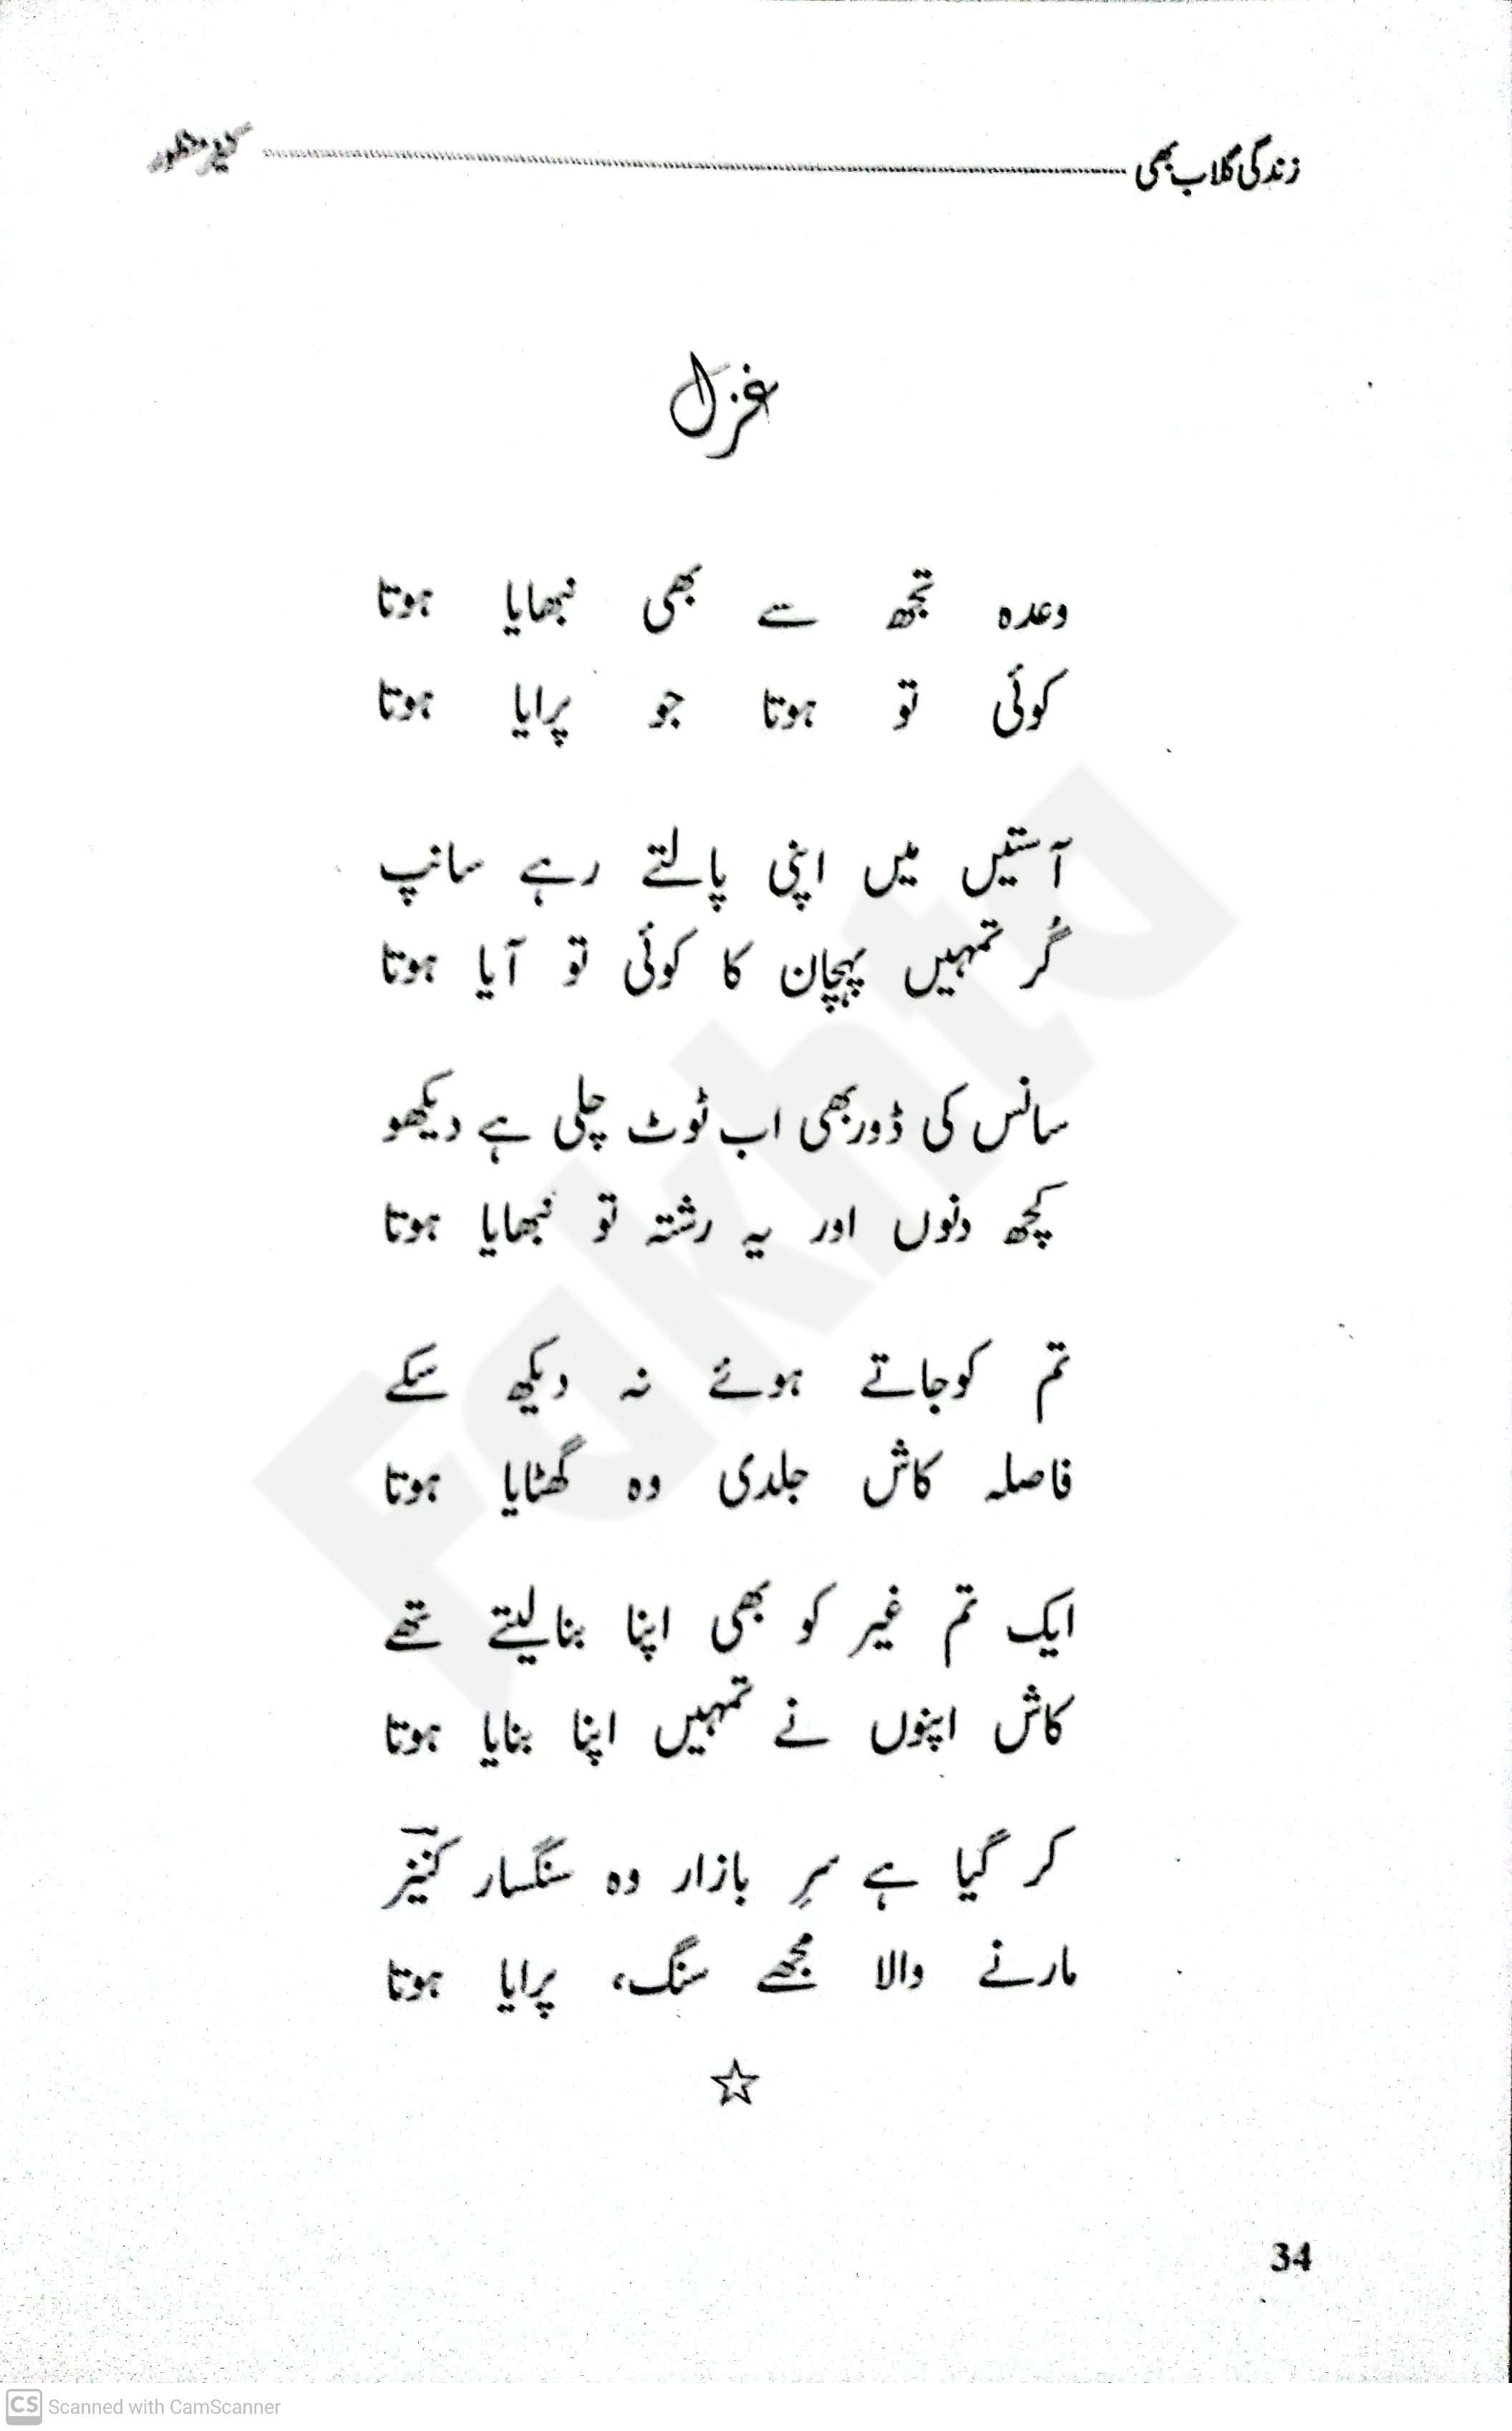 زندگی گلاب بھی کنیز منظور
غزل
وعدہ تجھ سے بھی نبھایا ہوتا
کوئی تو ہوتا جو پرایا ہوتا
آستیں میں اپنی پالتے رہے سانپ
گر تمہیں پہچان کا کوئی تو آیا ہوتا
سانس کی ڈور بھی اب ٹوٹ چلی ہے دیکھو
کچھ دنوں اور یہ رشتہ تو نبھایا ہوتا
تم کو جاتے ہوئے نہ دیکھ سکے
فاصلہ کاش جلدی وہ گھٹایا ہوتا
ایک تم غیر کو بھی اپنا بنا لیتے تھے
کاش اپنوں نے تمہیں اپنا بنایا ہوتا
کر گیا ہے سرِ بازار وہ سنگسار کنیزؔ
مارنے والا مجھے سنگ، پرایا ہوتا
34
Fakhta
CS Scanned with CamScanner